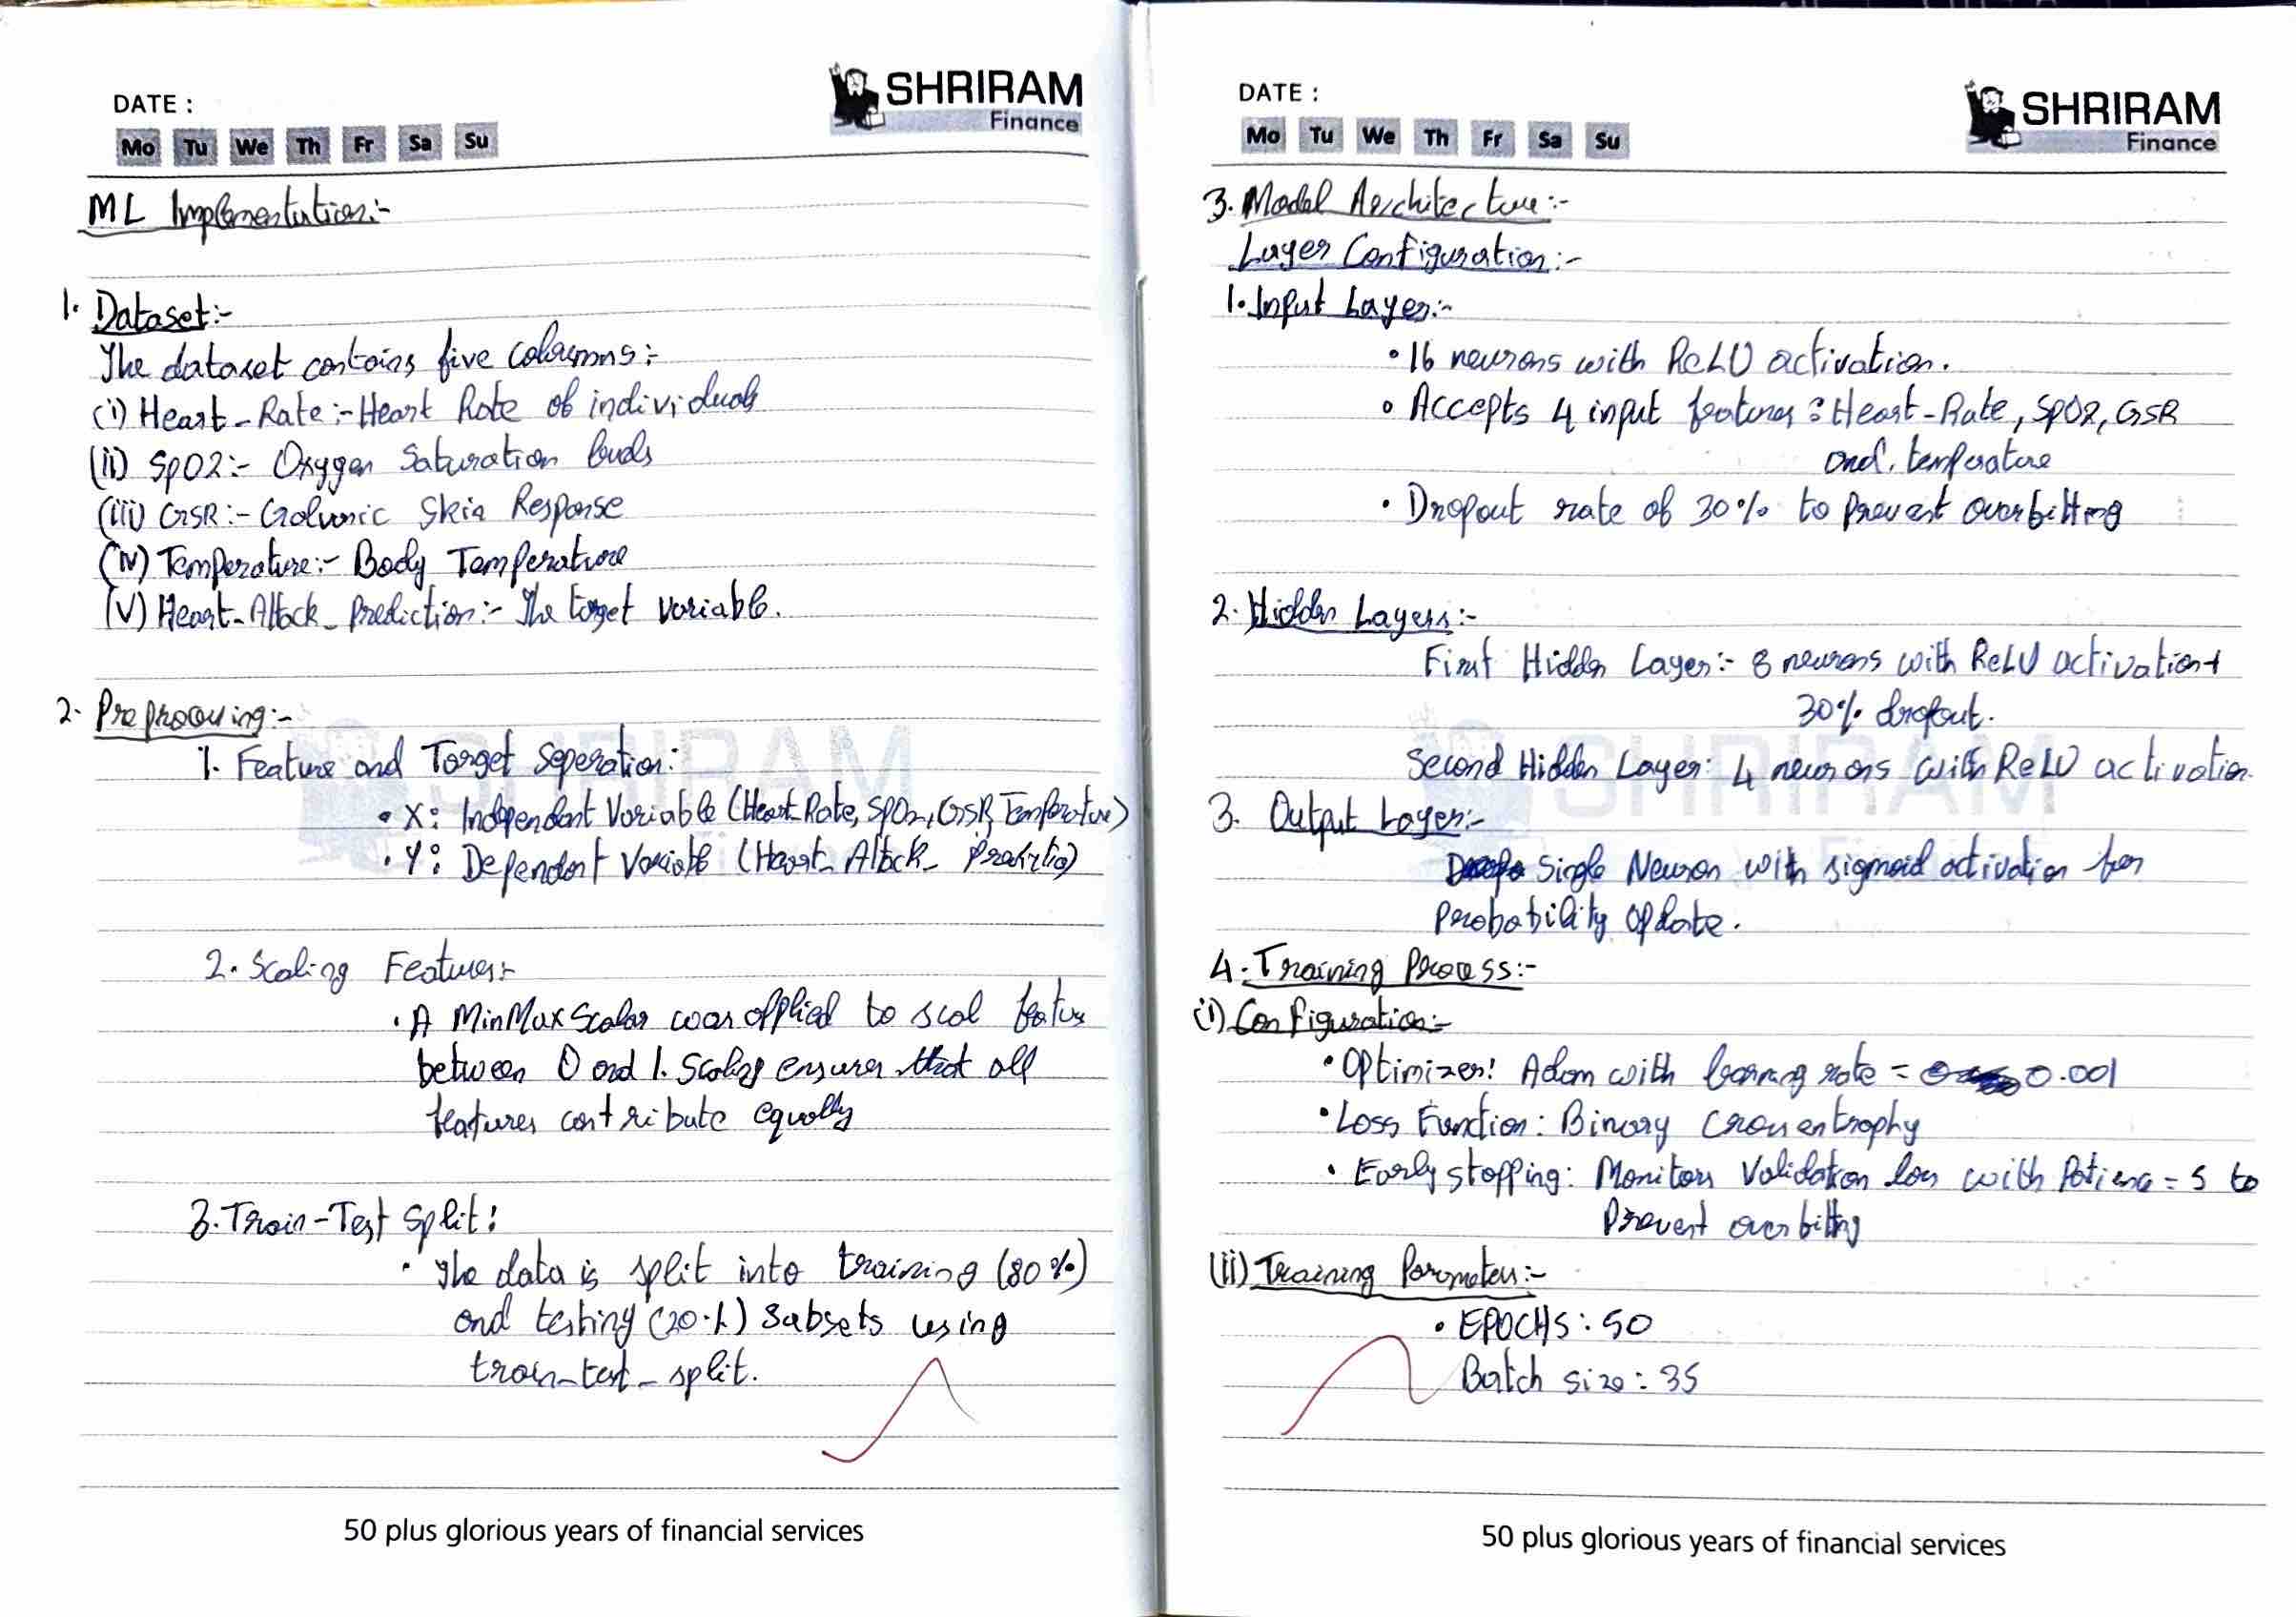 DATE :
SHRIRAM
Finance
Mo Tu We Th Fr Sa Su
ML Implementation:-
1. Dataset:-
The dataset contains five columns:-
(i) Heart_Rate:- Heart Rate of individuals
(ii) SpO2:- Oxygen Saturation levels
(iii) GSR:- Galvanic Skin Response
(iv) Temperature:- Body Temperature
(v) Heart_Attack_Prediction:- The target variable.
2. Preprocessing:-
1. Feature and Target Seperation:
• X: Independent Variable (Heart_Rate, SpO2, GSR, Temperature)
• Y: Dependent Variable (Heart_Attack_Prediction)
2. Scaling Features:-
• A MinMax Scalar was applied to scal featus
between 0 and 1. Scaling ensures that all
features contribute equally
3. Train-Test Split:
• The data is split into training (80%)
and testing (20%) subsets using
train_test_split.
50 plus glorious years of financial services
DATE :
SHRIRAM
Finance
Mo Tu We Th Fr Sa Su
3. Model Architecture:-
Layer Configuration:-
1. Input Layer:-
• 16 neurons with ReLU activation.
• Accepts 4 input features: Heart-Rate, SpO2, GSR
and. temperature
• Dropout rate of 30% to prevent overfitting
2. Hidden Layers:-
First Hidden Layer:- 8 neurons with ReLU activation +
30% dropout.
Second Hidden Layer: 4 neurons with ReLU activation.
3. Output Layer:-
Single Neuron with sigmoid activation for
Probability Update.
4. Training Process:-
(i) Configuration:-
• Optimizer: Adam with learning rate = 0.001
• Loss Function: Binary Crossentrophy
• Early stopping: Monitors Validation loss with Patience = 5 to
Prevent overfitting
(ii) Training Parameters:-
• EPOCHS: 50
Batch size: 35
50 plus glorious years of financial services